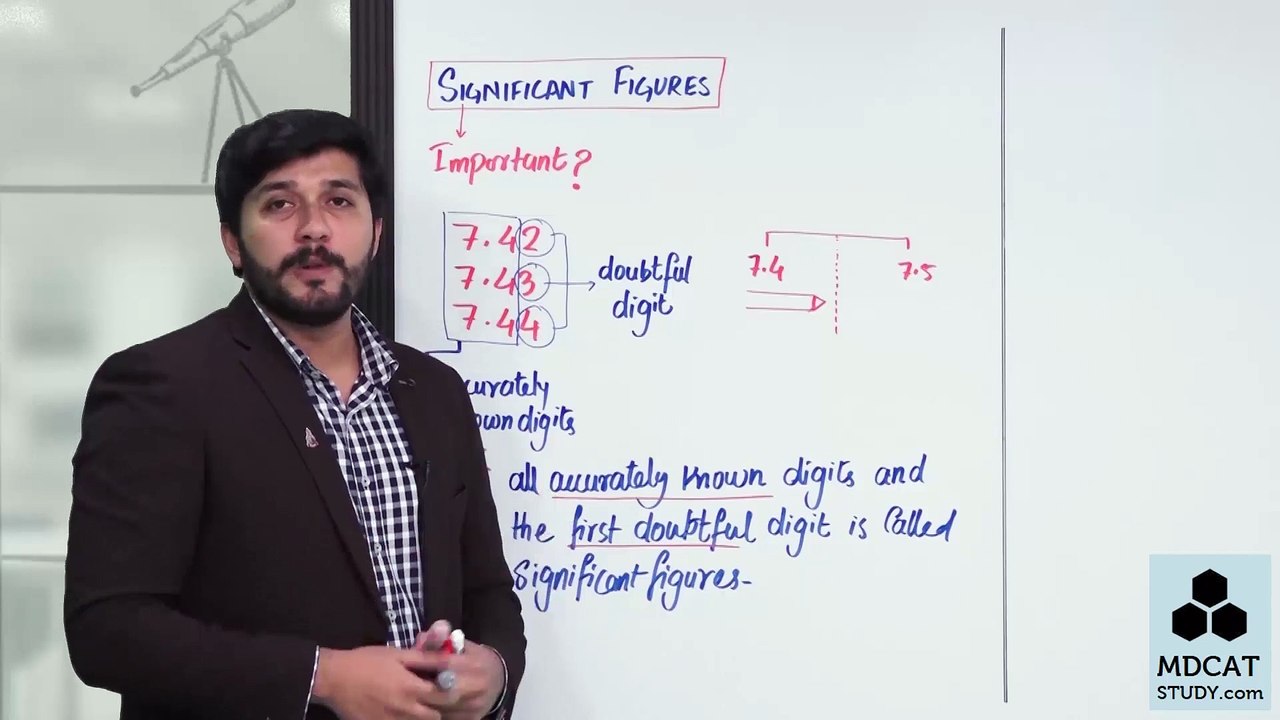 SIGNIFICANT FIGURES
Important?
7.42
7.43
7.44
doubtful
digit
7.4
7.5
curately
own digits
all accurately known digits and
the first doubtful digit is called
significant figures-
MDCAT
STUDY.com